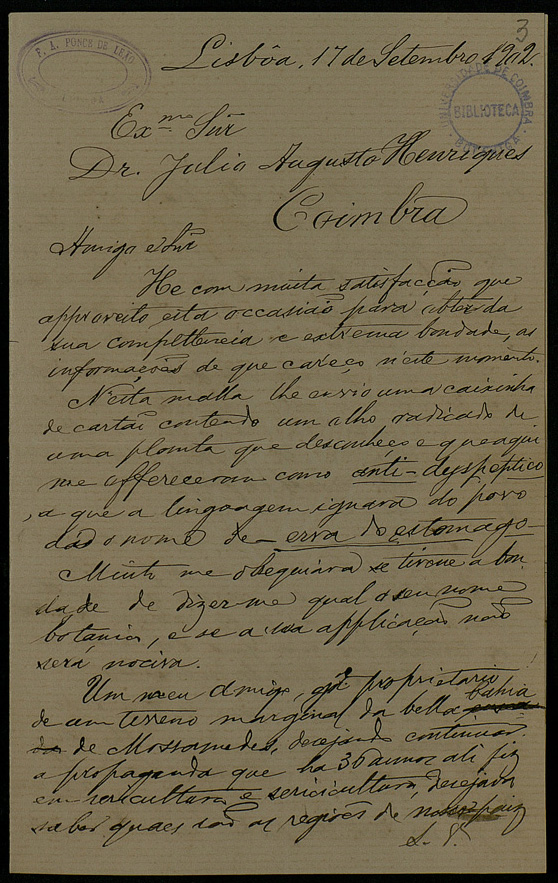 3
F. A. PONCE DE LEÃO
Lisbôa, 17 de Setembro, 1902.
UNIVERSIDADE DE COIMBRA
BIBLIOTECA
BOTANICA
Exmo Snr
Dr. Julio Augusto Henriques
Coimbra
Amigo e Snr
He com muita satisfacção que
approveito esta occasião para obter da
sua competencia e extrema bondade, as
informações de que careço n'este momento.
N'esta malla lhe envio uma caixinha
de cartão contendo um olho radicado de
uma planta que desconheço e que aqui
me offereceram como anti-dyspeptico
, a que a linguagem ignara do povo
dão o nome de - erva do estomago -
Muito me obsequiara se tivesse a bon-
dade de dizer-me qual o seu nome
botanico, e se a sua applicação não
será nociva.
Um meu amigo, proprietario
de um terreno marginal da bella bahia
de Mossamedes, desejando continuar
a propaganda que ha 30 annos ali fiz
em sericultura, e sericicultura, desejava
saber quaes são as regiões de
S. P.